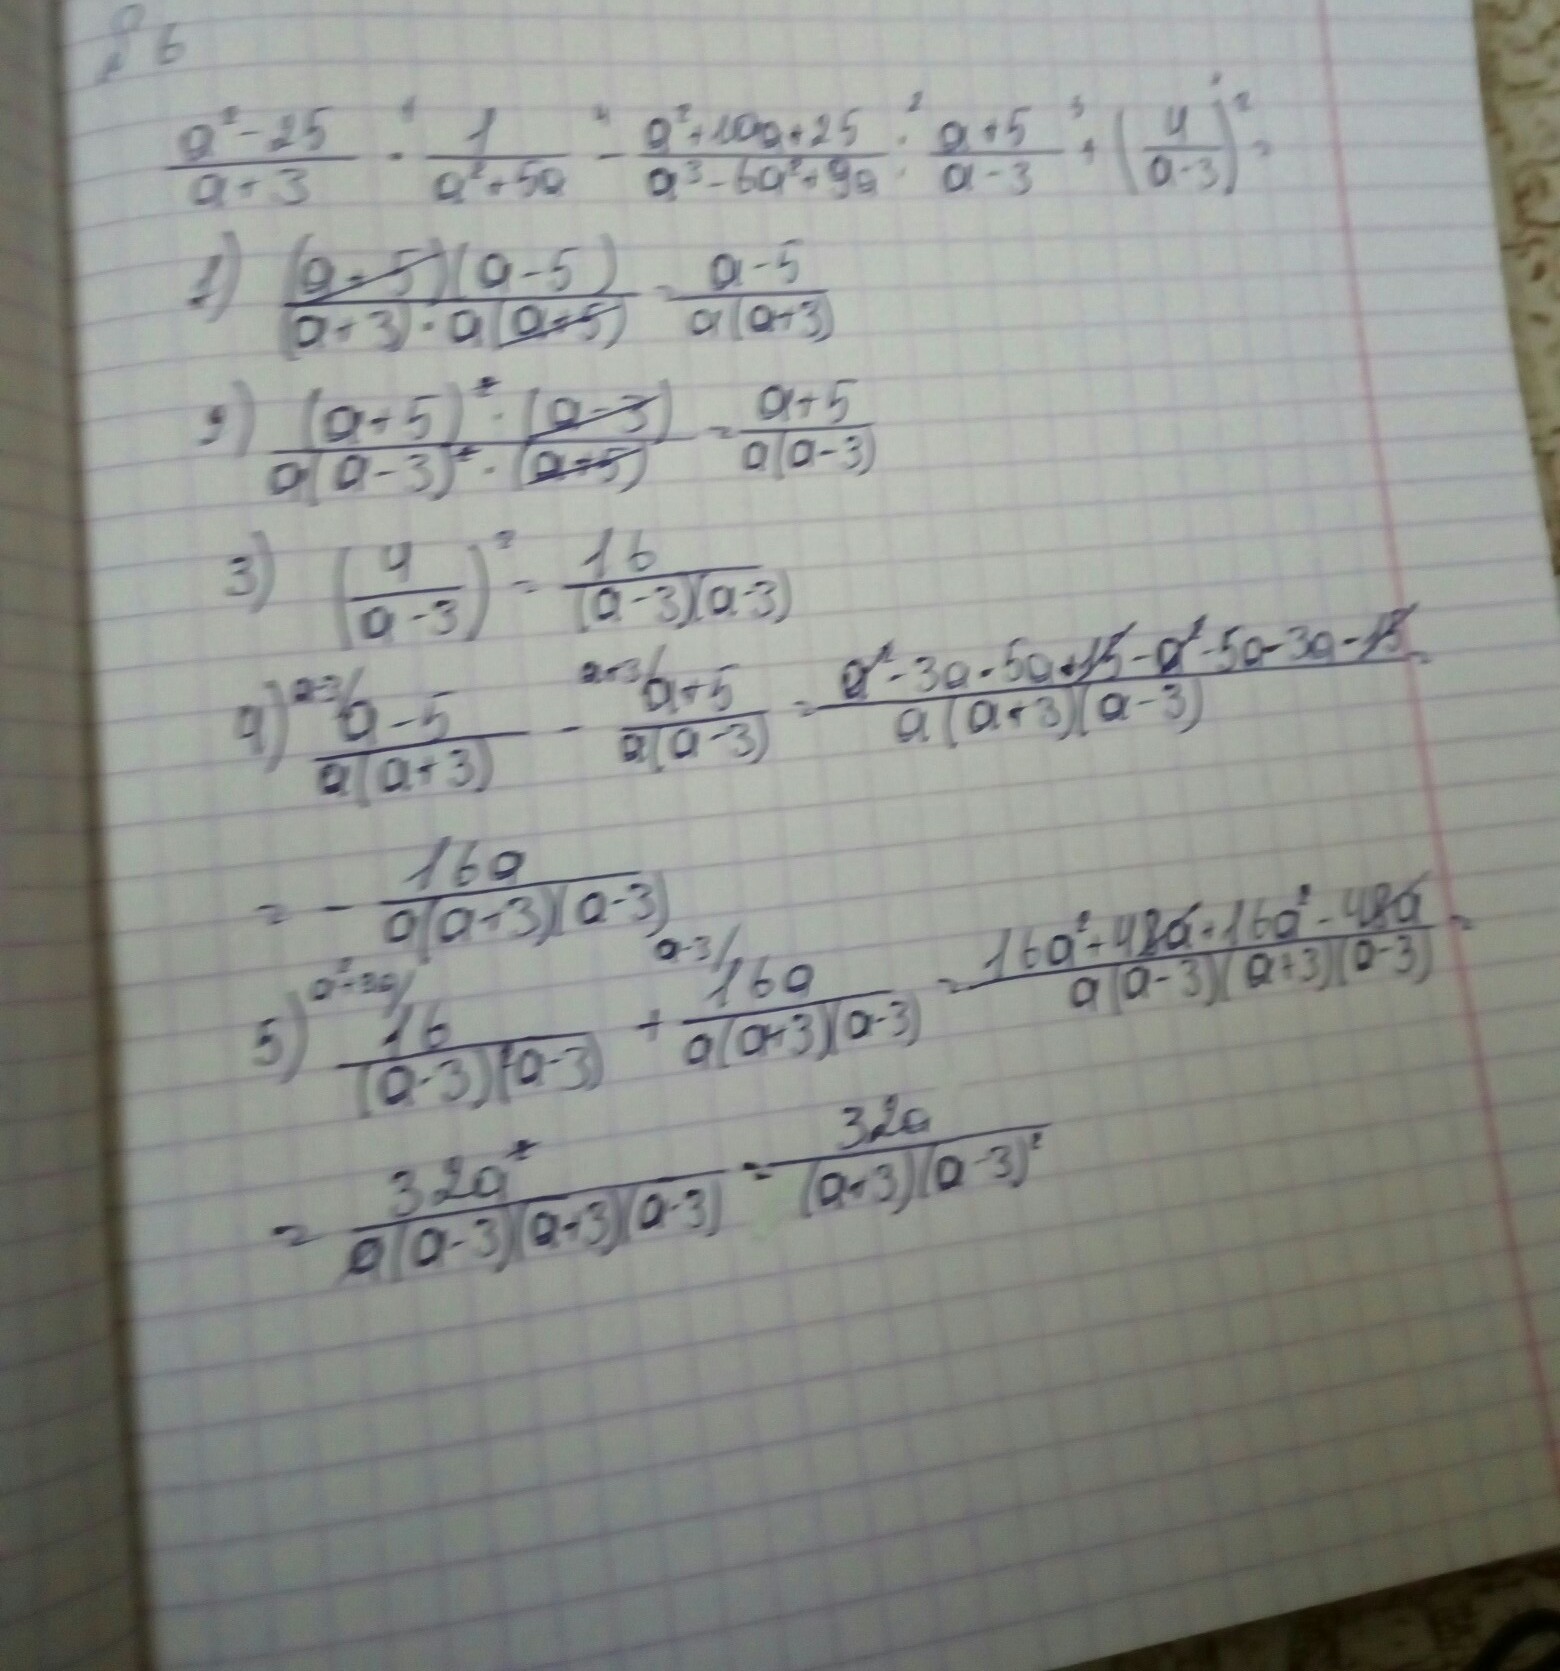 6
(a²-25)/(a+3) · 1/(a²+5a) - (a²+10a+25)/(a³-6a²+9a) : (a+5)/(a-3) + (4/(a-3))² =
1) (a+5)(a-5)/((a+3)·a(a+5)) = (a-5)/(a(a+3))
2) (a+5)²·(a-3)/(a(a-3)²·(a+5)) = (a+5)/(a(a-3))
3) (4/(a-3))² = 16/((a-3)(a-3))
4) a-3/ (a-5)/(a(a+3)) - a+3/ (a+5)/(a(a-3)) = (a²-3a-5a+15-a²-5a-3a-15)/(a(a+3)(a-3)) =
= - 16a/(a(a+3)(a-3))
5) a²+3a/ 16/((a-3)(a-3)) + a-3/ 16a/(a(a+3)(a-3)) = (16a²+48a+16a²-48a)/(a(a-3)(a+3)(a-3)) =
= 32a²/(a(a-3)(a+3)(a-3)) = 32a/((a+3)(a-3)²)